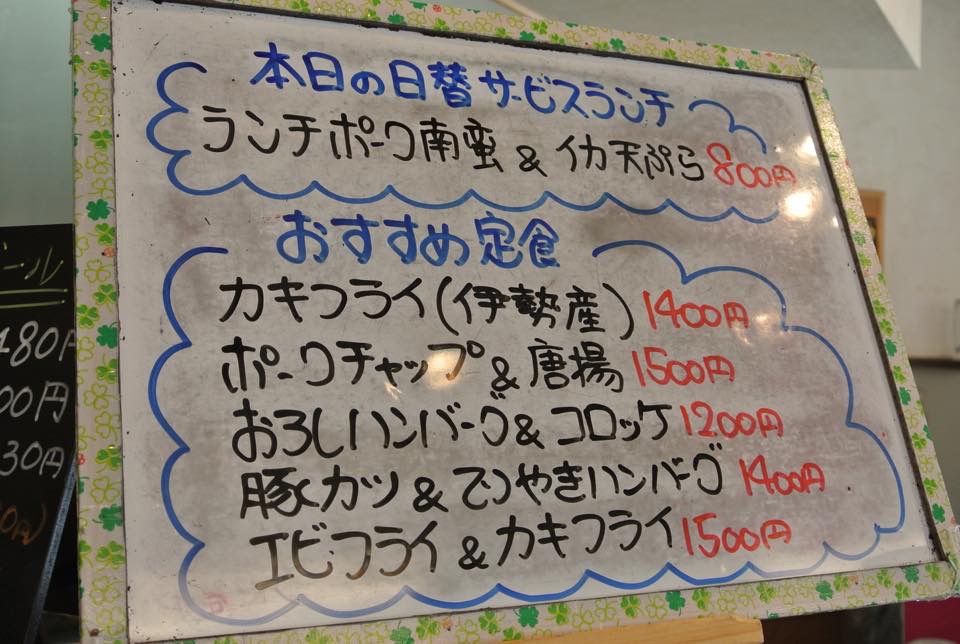 本日の日替サービスランチ
ランチポーク南蛮 & イカ天ぷら 800円
おすすめ定食
カキフライ(伊勢産) 1400円
ポークチャップ & 唐揚 1500円
おろしハンバーグ & コロッケ 1200円
豚カツ & てりやきハンバーグ 1400円
エビフライ & カキフライ 1500円
ール
480円
00円
30円
0円)